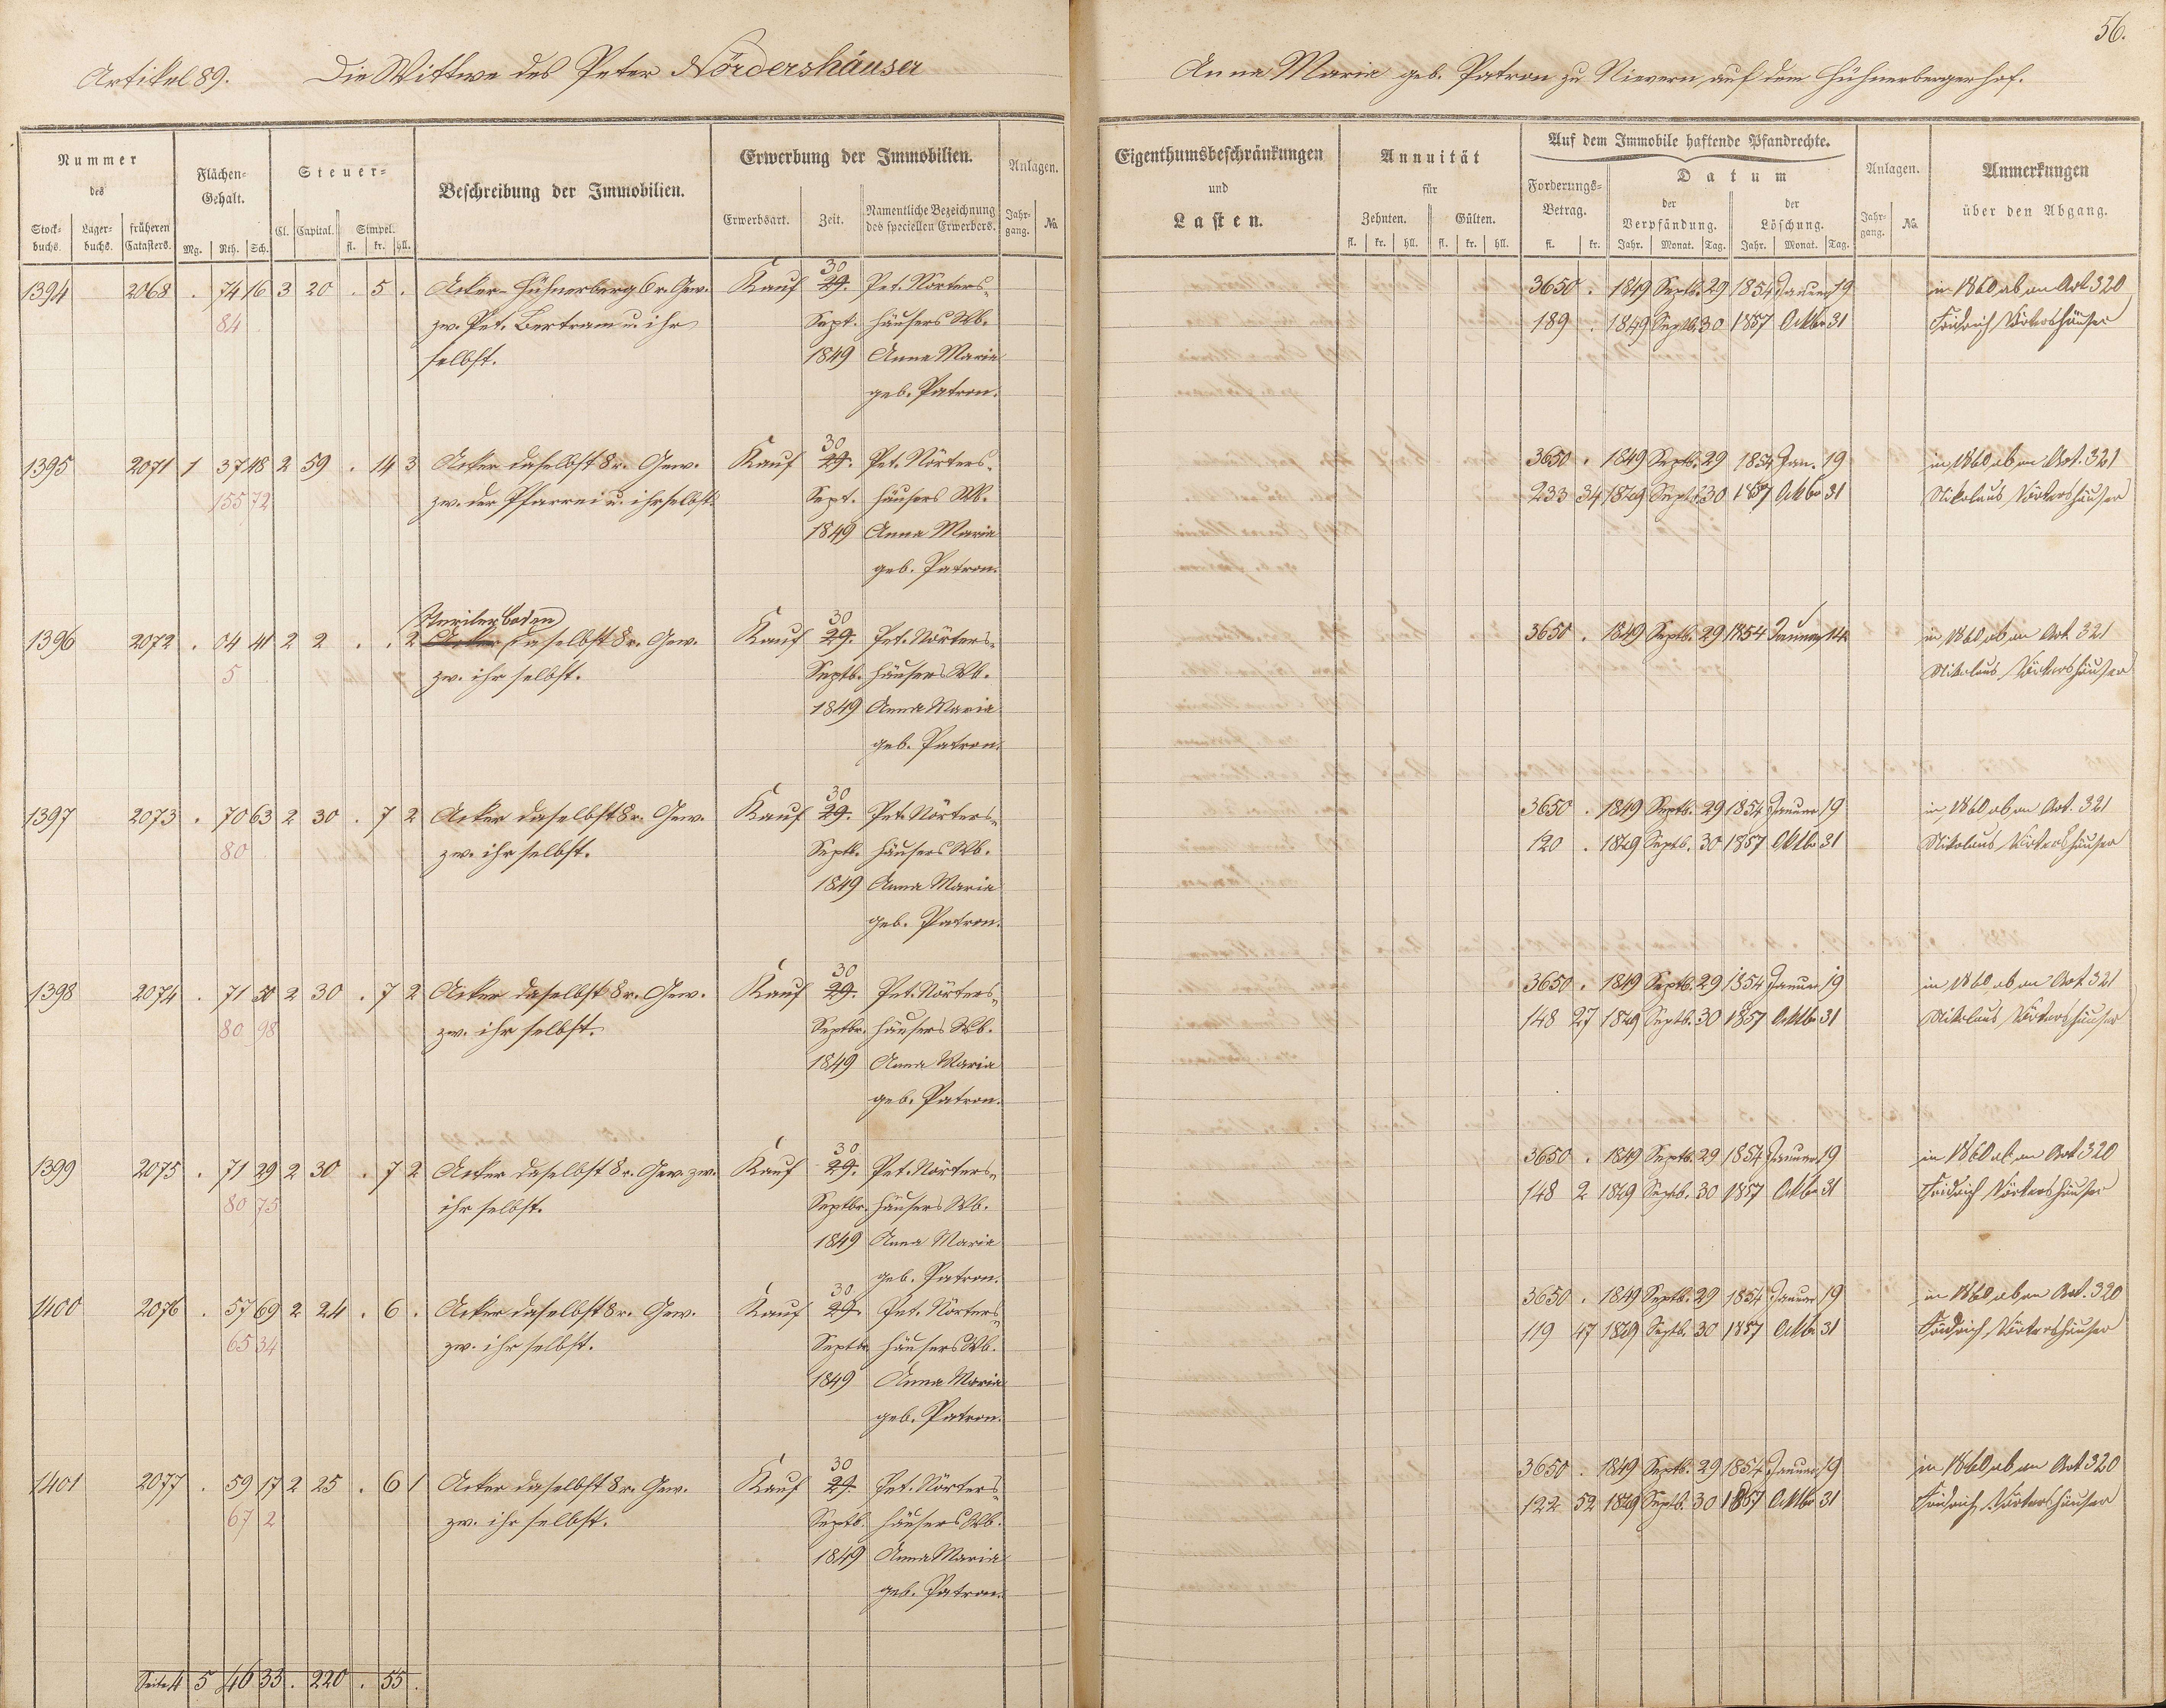 56.
Artikel 89. Die Wittwe des Peter Nördershäuser Anna Maria geb. Patron zu Nievern, auf dem Hühnerbergerhof.
Nummer des
Stockbuchs. Lagerbuchs. früheren Catasters.
Flächen-Gehalt.
Mg. Rth. Sch.
Steuer-
Cl. Capital. Simpel.
fl. kr. hll.
Beschreibung der Immobilien.
Erwerbung der Immobilien.
Erwerbsart. Zeit. Namentliche Bezeichnung des speciellen Erwerbers.
Anlagen.
Jahrgang. No.
Eigenthumsbeschränkungen
und
Lasten.
Annuität
für
Zehnten. Gülten.
fl. kr. hll. fl. kr. hll.
Auf dem Immobile haftende Pfandrechte.
Forderungs-Betrag.
fl. kr.
Datum
der Verpfändung. der Löschung.
Jahr. Monat. Tag. Jahr. Monat. Tag.
Anlagen.
Jahrgang. No.
Anmerkungen
über den Abgang.
30
1394 2068 . 74 16 3 20 . 5 . Acker Hühnerberg 6r. Gew. Kauf 29. Pet. Nörters- 3650 . 1849 Septb. 29 1854 Januar 19 in 1860 ab an Art 320
84 zw. Pet. Bertram u. ihr Sept. häusers Wb. 189 . 1849 Septb. 30 1857 Oktbr 31 Friedrich Nörtershäuser
selbst. 1849 Anna Maria
geb. Patron.
30
1395 2071 1 37 48 2 59 . 14 3 Acker daselbst 8r. Gew. Kauf 29. Pet. Nörters- 3650 . 1849 Septb. 29 1854 Jan. 19 in 1860 ab an Art. 321
155 72 zw. der Pfarrei u. ihr selbst. Sept. häusers Wb. 233 34 1849 Septb. 30 1857 Oktbr 31 Nikolaus Nörtershäuser
1849 Anna Maria
geb. Patron.
Steriler Boden 30
1396 2072 . 04 41 2 2 . . 2 Acker daselbst 8r. Gew. Kauf 29. Pet. Nörters- 3650 . 1849 Septb. 29 1854 Januar 14 in 1860 ab an Art 321
5 zw. ihr selbst. Septb. häusers Wb. Nikolaus Nörtershäuser
1849 Anna Maria
geb. Patron.
30
1397 2073 . 70 63 2 30 . 7 2 Acker daselbst 8r. Gew. Kauf 29. Pet. Nörters- 3650 . 1849 Septb. 29 1854 Januar 19 in 1860 ab an Art. 321
80 zw. ihr selbst. Septb. häusers Wb. 120 . 1849 Septb. 30 1857 Oktbr 31 Nikolaus Nörtershäuser
1849 Anna Maria
geb. Patron.
30
1398 2074 . 71 50 2 30 . 7 2 Acker daselbst 8r. Gew. Kauf 29. Pet. Nörters- 3650 . 1849 Septb. 29 1854 Januar 19 in 1860 ab an Art 321
80 98 zw. ihr selbst. Septbr. häusers Wb. 148 27 1849 Septb. 30 1857 Oktbr 31 Nikolaus Nörtershäuser
1849 Anna Maria
geb. Patron.
30
1399 2075 . 71 29 2 30 . 7 2 Acker daselbst 8r. Gew. zw. Kauf 29. Pet. Nörters- 3650 . 1849 Septb. 29 1854 Januar 19 in 1860 ab an Art 320
80 75 ihr selbst. Septbr. häusers Wb. 148 2 1849 Septb. 30 1857 Oktbr 31 Friedrich Nörtershäuser
1849 Anna Maria
geb. Patron.
30
1400 2076 . 57 69 2 24 . 6 . Acker daselbst 8r. Gew. Kauf 29. Pet. Nörters- 3650 . 1849 Septb. 29 1854 Januar 19 in 1860 ab an Art. 320
65 34 zw. ihr selbst. Septbr. häusers Wb. 119 47 1849 Septb. 30 1857 Oktbr 31 Friedrich Nörtershäuser
1849 Anna Maria
geb. Patron.
30
1401 2077 . 59 17 2 25 . 6 1 Acker daselbst 8r. Gew. Kauf 29. Pet. Nörters- 3650 . 1849 Septb. 29 1854 Januar 19 in 1860 ab an Art 320
67 2 zw. ihr selbst. Septb. häusers Wb. 122 52 1849 Septb. 30 1857 Oktbr 31 Friedrich Nörtershäuser
1849 Anna Maria
geb. Patron.
Seite 4 5 46 33 . 220 . 55 .